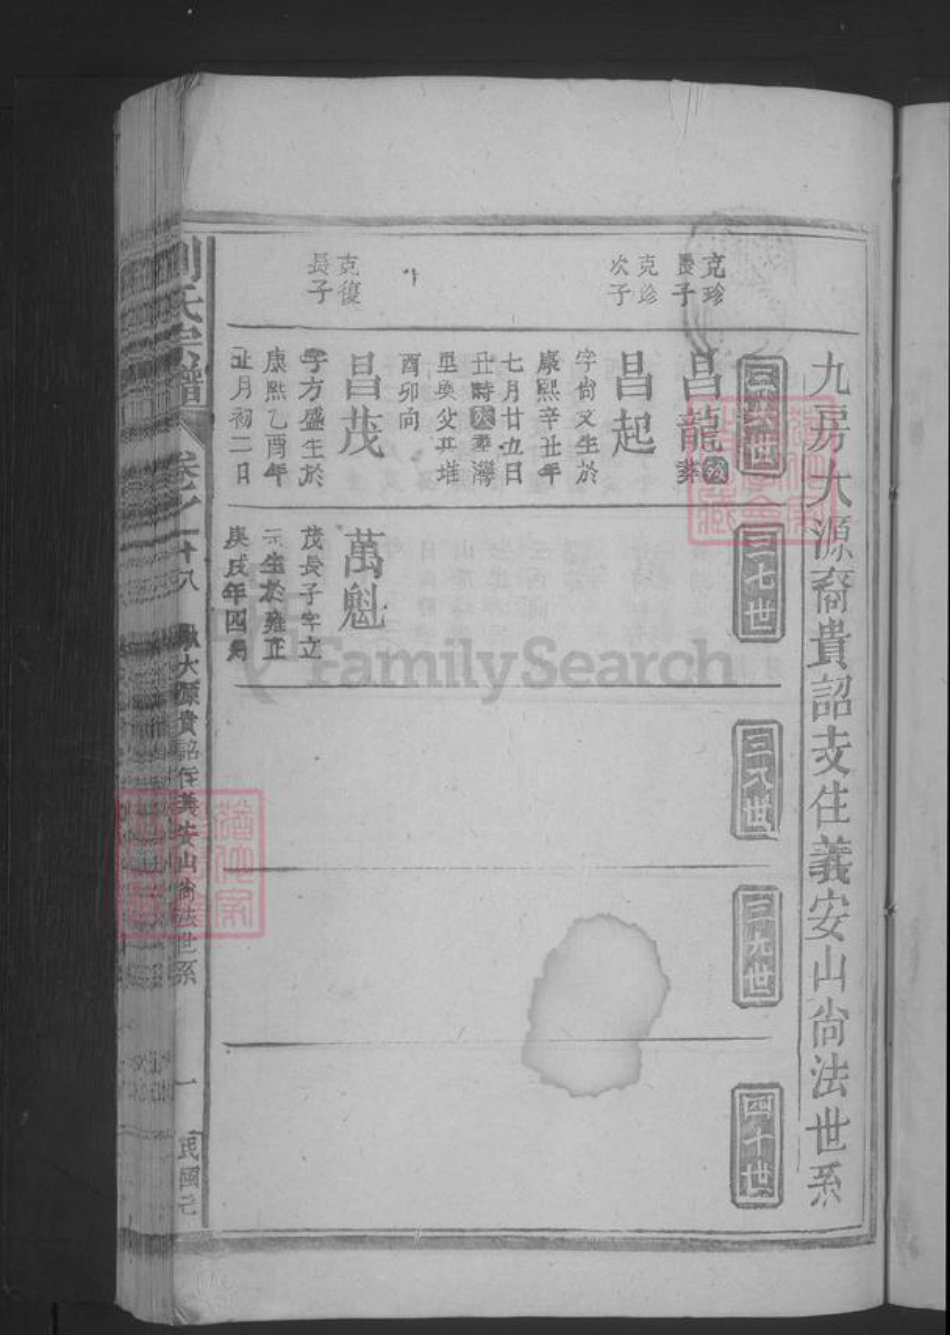 九房大源裔貴詔支住義安山尙法世系
三六世
三七世
三八世
三九世
四十世
克珍
長子
昌龍
葬
克珍
次子
昌起
字尙文生於
康熙辛丑年
七月廿五日
丑時 葬灣
里與父共堆
酉卯向
克復
長子
昌茂
字方盛生於
康熙乙酉年
正月初二日
萬魁
茂長子字立
元生於雍正
庚戌年四月
劉氏宗譜
卷之二十八
大源貴詔住義安山尙法世系
一
民國
FamilySearch